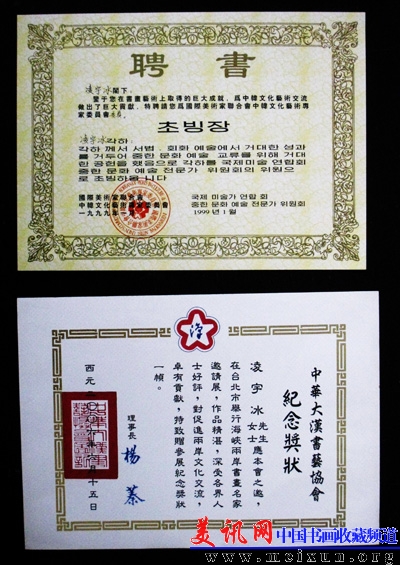 聘書
凌宇冰閣下:
鑒于您在書畫藝術上取得的巨大成就,爲中韓文化藝術交流
做出了巨大貢獻,特聘請您爲國際美術家聯合會中韓文化藝術專
家委員會委員。
초빙장
凌宇冰각하:
각하께서 서법, 회화 예술에서 거대한 성과
를 거두어 중한 문화 예술 교류를 위해 거대
한 공헌을 했음으로 각하를 국제미술 연맙회
중한 문화 예술 전문가 위원회의 위원으
로 초빙하옵니다
國際美術家聯合會
中韓文化藝術專家委員會
一九九九年一月
국제 미술가 연합회
중한 문화 예술 전문가 위원회
1999년1월
漢
中華大漢書藝協會
紀念獎狀
凌宇冰 先生女士 應本會之邀,
在台北市舉行海峽兩岸書畫名家
邀請展,作品精湛,深受各界人
士好評,對促進兩岸文化交流,
卓有貢獻,特致贈參展紀念獎狀
一幀。
理事長 楊蓁
西元二〇
月十五日
美讯网 中国书画收藏频道
www.meixun.org